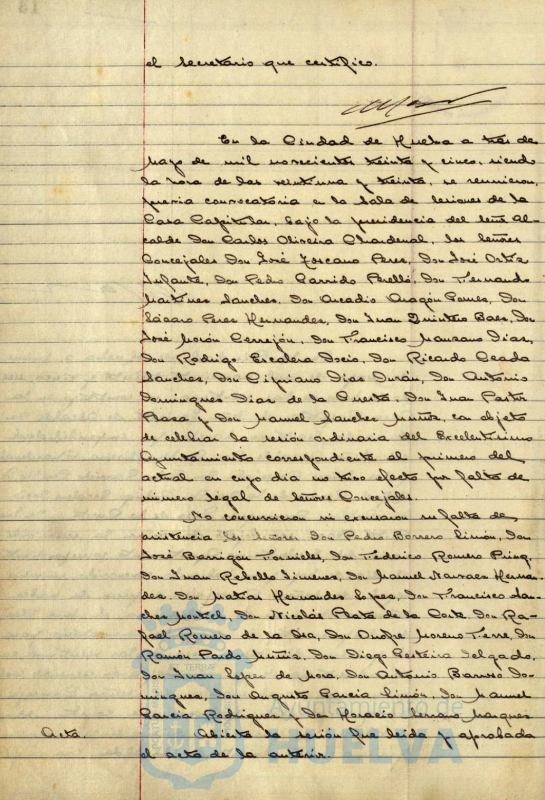 el Secretario que certifico.
En la Ciudad de Huelva a tres de
Mayo de mil novecientos treinta y cinco, siendo
la hora de las veintiuna y treinta, se reunieron,
previa convocatoria en la Sala de Sesiones de la
Casa Capitular, bajo la presidencia del señor Al-
calde Don Carlos Oliveira Chardenal, los Señores
Concejales Don José Toscano Perez, Don José Ortiz
Infante, Don Pedro Garrido Perelló, Don Fernando
Martinez Sanchez, Don Arcadio Aragón Gomez, Don
Lázaro Perez Hernandez, Don Juan Quintero Baez, Don
José Morón Cerrejón, Don Francisco Manzano Diaz,
Don Rodrigo Escalera Docio, Don Ricardo Ceada
Sanchez, Don Cipriano Dias Durán, Don Antonio
Dominguez Dias de la Cuesta, Don Juan Pastor
Plaza y Don Manuel Sanchez Muñoz, con objeto
de celebrar la sesión ordinaria del Excelentisimo
Ayuntamiento correspondiente al primero del
actual en cuyo dia no tuvo efecto por falta de
número legal de Señores Concejales.
No concurrieron ni excusaron su falta de
asistencia los Señores Don Pedro Borrero Limón, Don
José Barrigón Fornieles, Don Federico Romero
Don Juan Rebollo Jimenez, Don Manuel Narvaez Hernan-
dez, Don Matias Hernandez Lopez, Don Francisco San-
chez Montiel, Don Nicolás Plata de la Corte, Don Ra-
fael Romero de la Don Onofre Moreno Terre, Don
Ramón Pardo Muñiz, Don Diego Delgado,
Don Juan Lopez de Mora, Don Antonio Barroso Do-
minguez, Don Augusto Garcia Limón, Don Manuel
Garcia Rodriguez y Don Horacio Serrano Marquez
Acta. Abierta la sesión fue leida y aprobada
el acta de la anterior.
Ayuntamiento de
HUELVA